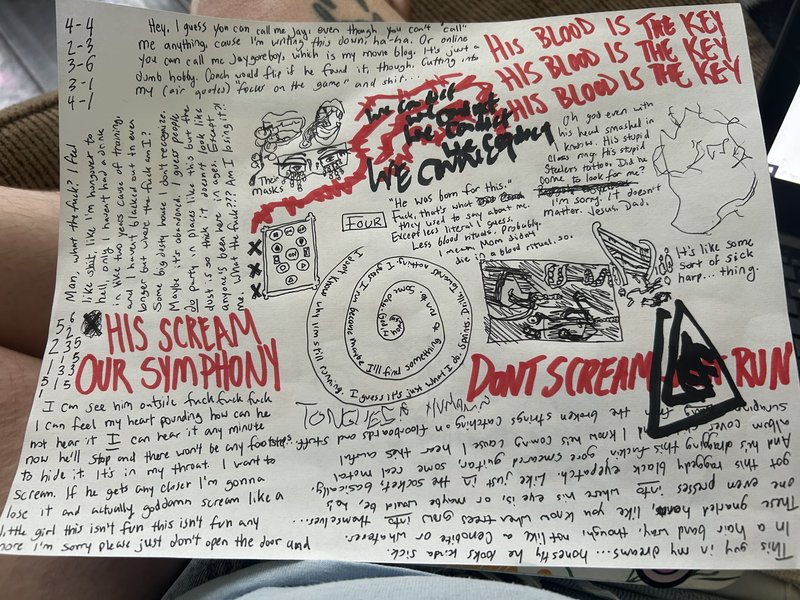 4-4
2-3
3-6
3-1
4-1
Hey, I guess you can call me Jay, even though you can't "call"
me anything, cause I'm writing this down, ha-ha. Or online
you can call me Jaygoreboy, which is my movie blog. It's just a
dumb hobby. Coach would flip if he found it, though. Cutting into
my (air quotes) "focus on the game" and shit...
HIS BLOOD IS THE KEY
HIS BLOOD IS THE KEY
HIS BLOOD IS THE KEY
We conduct
We conduct
We conduct
We conduct
Their
Masks
Man, what the fuck? I feel
like shit, like I'm hungover to
hell, only I haven't had a drink
in like two years cause of training,
and I haven't blacked out in even
longer but where the fuck am I?
Some big dusty house I don't recognize.
Maybe it's abandoned. I guess people
do party in places like this but the
dust is so thick it doesn't look like
anyone's been here in ages. Except
me. What the fuck??? Am I losing it?!
Oh god even with
his head smashed in
I know. His stupid
class ring. His stupid
Steelers tattoo. Did he
come to look for me?
I'm sorry. It doesn't
matter. Jesus, Dad.
FOUR
"He was born for this."
Fuck, that's what
they used to say about me.
Except less literal I guess.
Less blood ritual, probably.
I mean Mom didn't
die in a blood ritual, so.
It's like some
sort of sick
harp... thing.
I don't know why I'm still running. I guess it's just what I do. Sprints. Drills. Towards nothing, I guess. I can
maybe I'll find something
or
56
52
235
15
133
515
1
HIS SCREAM
OUR SYMPHONY
DON'T SCREAM JUST RUN
TONGUES
I can see him outside fuck fuck fuck
I can feel my heart pounding how can he
not hear it I can hear it any minute
now he'll stop and there won't be any footsteps
to hide it. It's in my throat. I want to
scream. If he gets any closer I'm gonna
lose it and actually goddamn scream like a
little girl this isn't fun this isn't fun any
more I'm sorry please just don't open the door and
This guy in my dreams... honestly he looks kinda sick.
In a hair band way, though, not like a Cenobite or whatever.
These gnarled horns, like you know when trees grow into themselves...
one even presses into where his eye is, or maybe would be, he's
got this raggedy black eyepatch. Like just in the socket, basically.
And he's dragging this fuckin gore smeared guitar, some real metal
album cover shit and I know his coming cause I hear this awful
scraping from the broken strings catching on floorboards and stuff